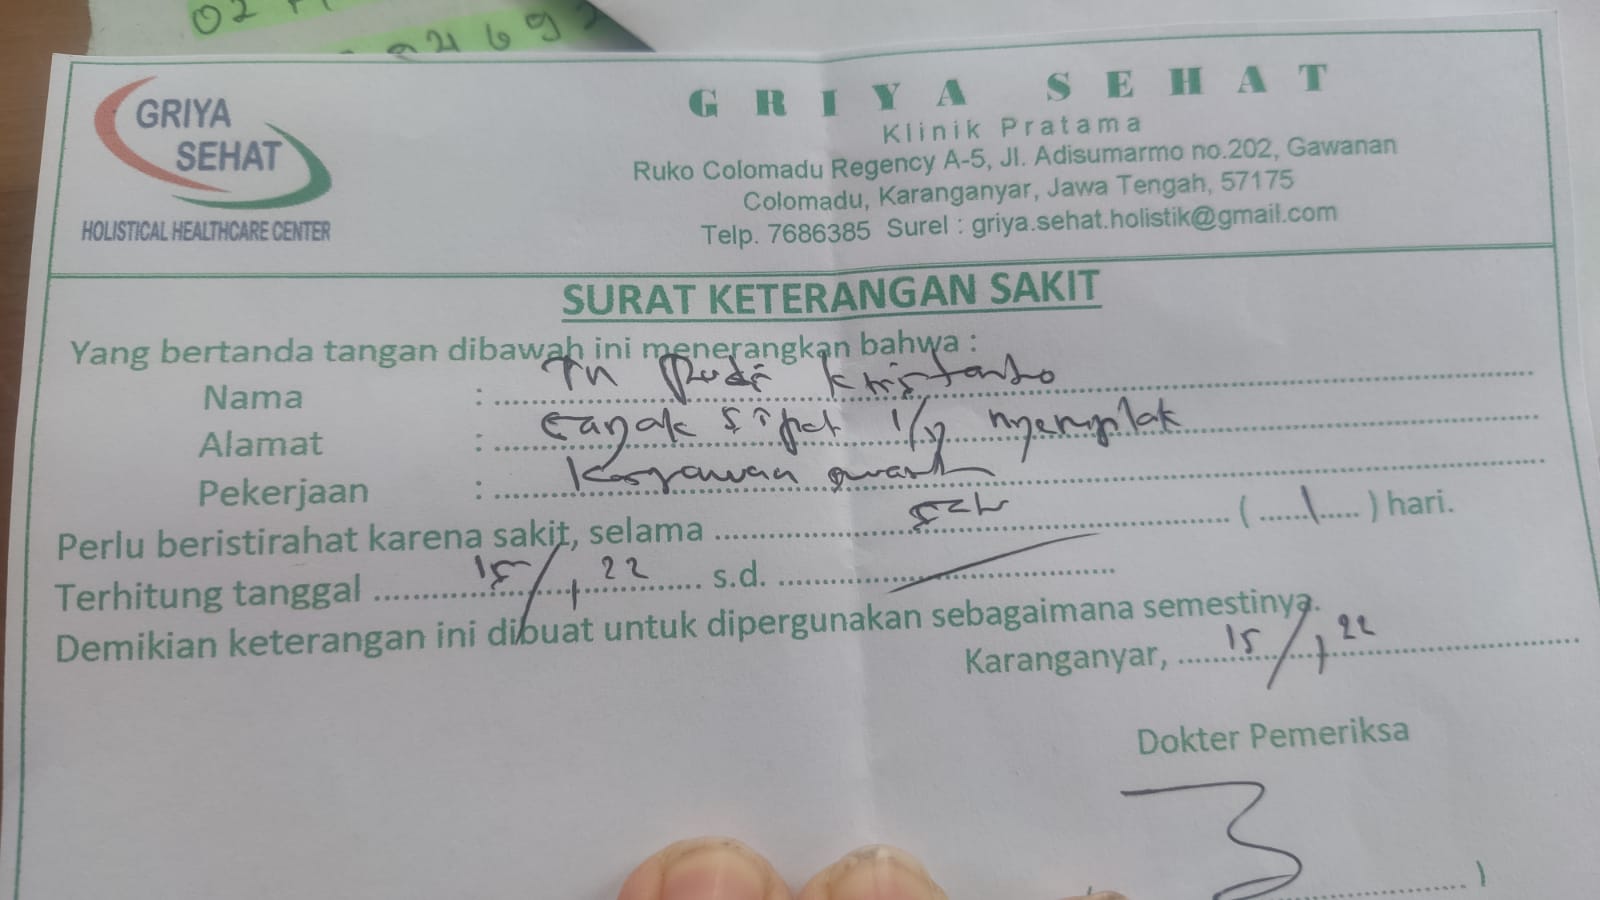 GRIYA
SEHAT
HOLISTICAL HEALTHCARE CENTER
GRIYA SEHAT
Klinik Pratama
Ruko Colomadu Regency A-5, Jl. Adisumarmo no.202, Gawanan
Colomadu, Karanganyar, Jawa Tengah, 57175
Telp. 7686385 Surel : griya.sehat.holistik@gmail.com
SURAT KETERANGAN SAKIT
Yang bertanda tangan dibawah ini menerangkan bahwa :
Nama : Tn Rudi Kristanto
Alamat :
Pekerjaan : Karyawan
Perlu beristirahat karena sakit, selama ( 1 ) hari.
Terhitung tanggal 15/1 22 s.d.
Demikian keterangan ini dibuat untuk dipergunakan sebagaimana semestinya.
Karanganyar, 15/1 22
Dokter Pemeriksa